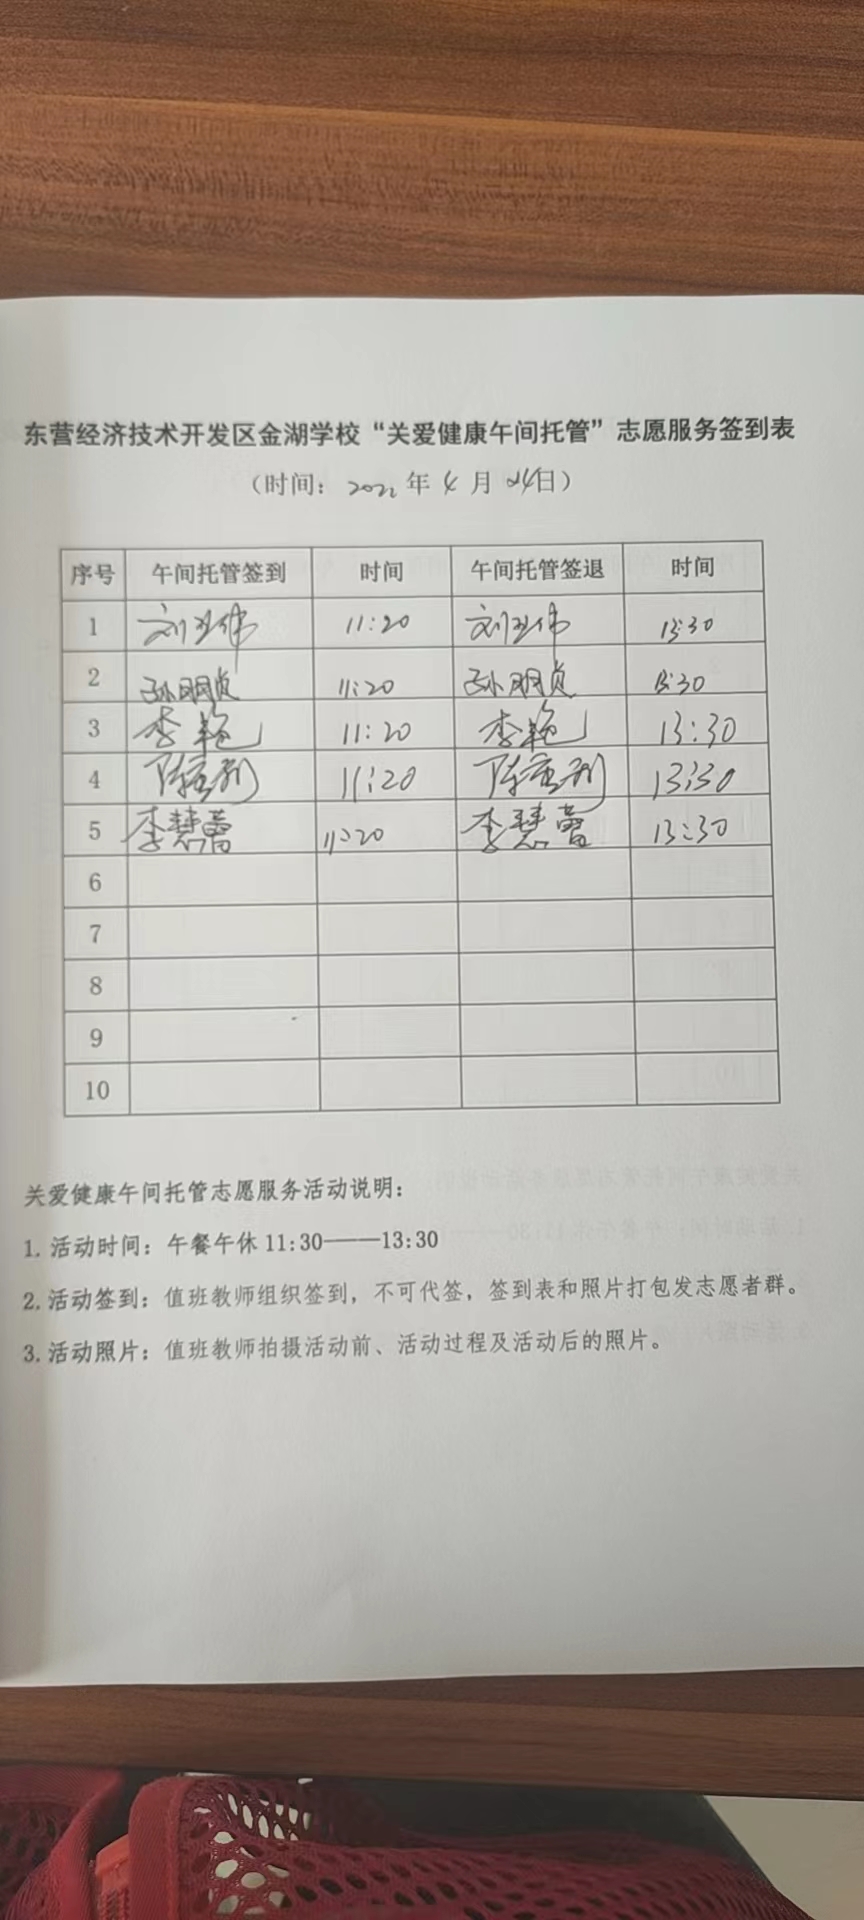 东营经济技术开发区金湖学校“关爱健康午间托管”志愿服务签到表
（时间：2022 年 4 月 24日）
序号 午间托管签到 时间 午间托管签退 时间
1 刘卫伟 11:20 刘卫伟 13:30
2 孙明贞 11:20 孙明贞 13:30
3 李艳 11:20 李艳 13:30
4 陈 11:20 陈 13:30
5 李慧蕾 11:20 李慧蕾 13:30
6
7
8
9
10
关爱健康午间托管志愿服务活动说明：
1. 活动时间：午餐午休 11:30——13:30
2. 活动签到：值班教师组织签到，不可代签，签到表和照片打包发志愿者群。
3. 活动照片：值班教师拍摄活动前、活动过程及活动后的照片。